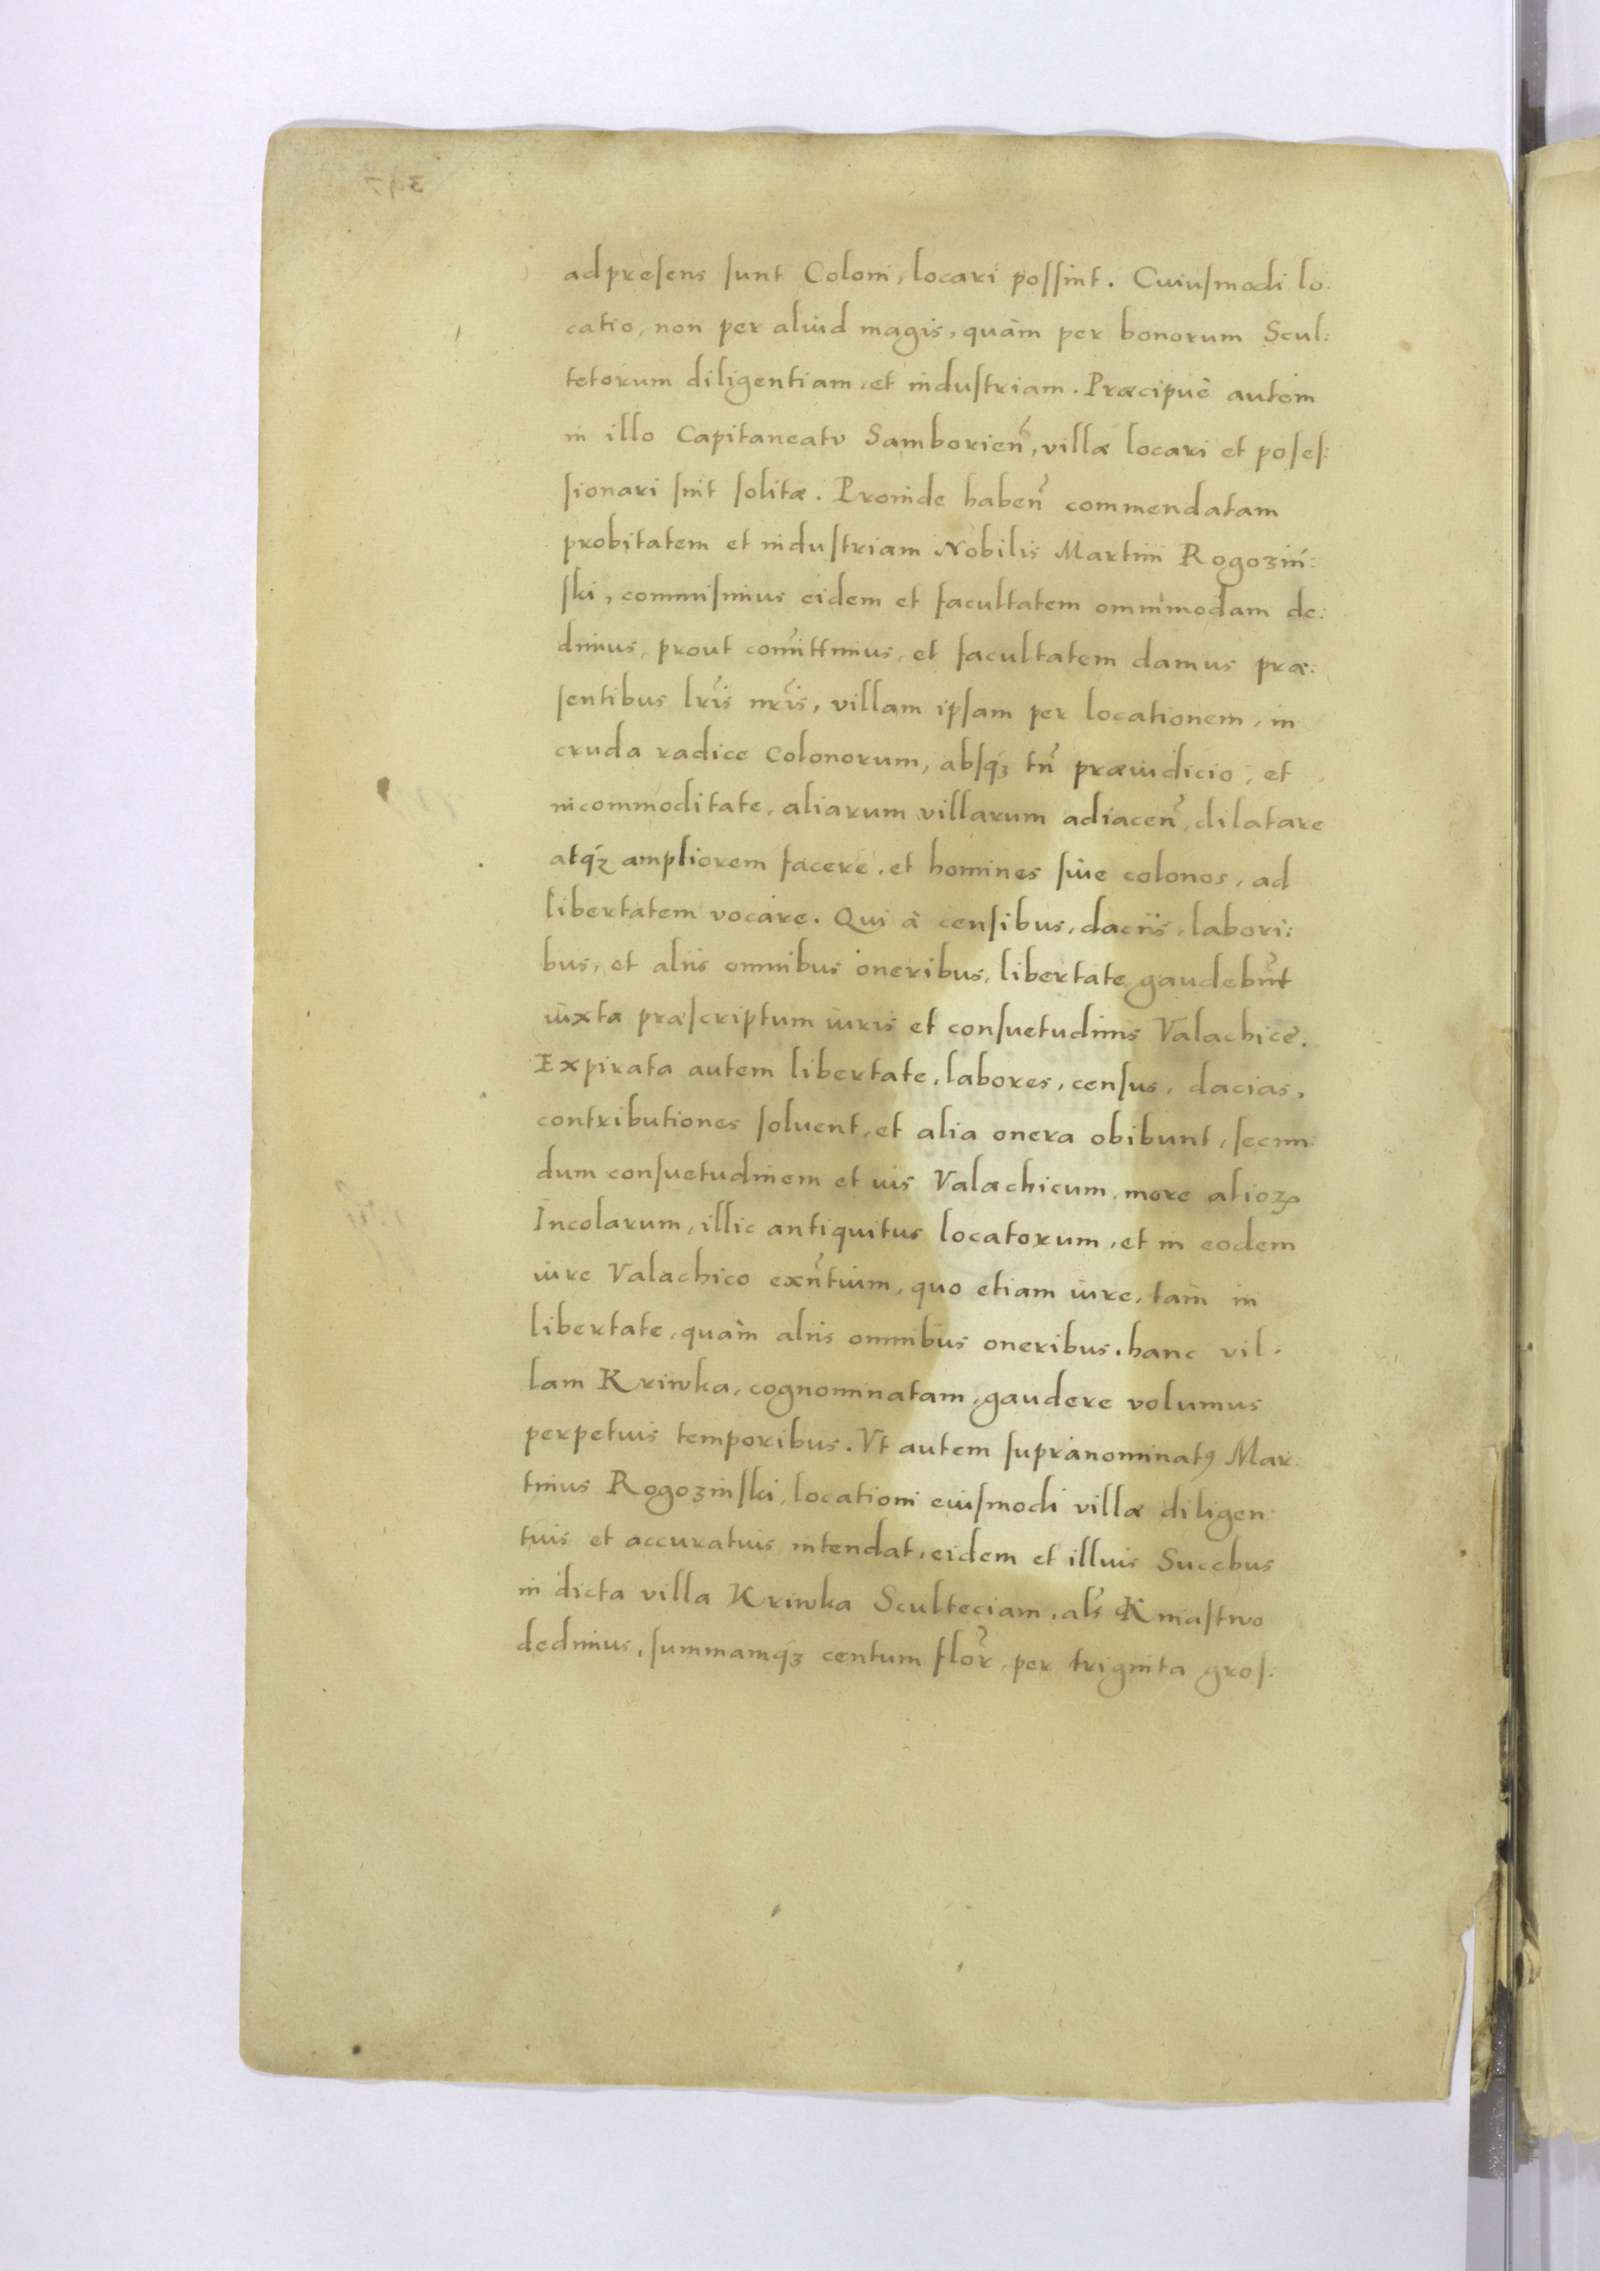 ad presens sunt Coloni, locari possint. Cuiusmodi lo:
catio, non per aliud magis, quàm per bonorum Scul:
tetorum diligentiam, et industriam. Præcipuè autem
in illo Capitaneatu Samborien, villæ locari et poses:
sionari sint solitæ. Proinde haben commendatam
probitatem et industriam Nobilis Martini Rogoziń:
ski, commisimus eidem et facultatem omnimodam de:
dimus, prout comittimus, et facultatem damus præ:
sentibus lris nris, villam ipsam per locationem, in
cruda radice Colonorum, absqȝ tn præiudicio, et
incommoditate, aliarum villarum adiacen, dilatare
atqȝ ampliorem facere, et homines siue colonos, ad
libertatem vocare. Qui à censibus, daciis, labori:
bus, et aliis omnibus oneribus, libertate gaudebunt
iuxta præscriptum iuris et consuetudinis Valachicè.
Expirata autem libertate, labores, census, dacias,
contributiones soluent, et alia onera obibunt, secun:
dum consuetudinem et ius Valachicum, more alioꝝ
Incolarum, illic antiquitus locatorum, et in eodem
iure Valachico exntium, quo etiam iure, tàm in
libertate, quàm aliis omnibus oneribus, hanc vil:
lam Kriwka, cognominatam, gaudere volumus
perpetuis temporibus. Vt autem supranominatꝰ Mar:
tinus Rogozinski, locationi eiusmodi villæ diligen:
tius et accuratius intendat, eidem et illius Succbus
in dicta villa Kriwka Sculteciam, als Kniastwo
dedimus, summamqȝ centum flor, per triginta gros: